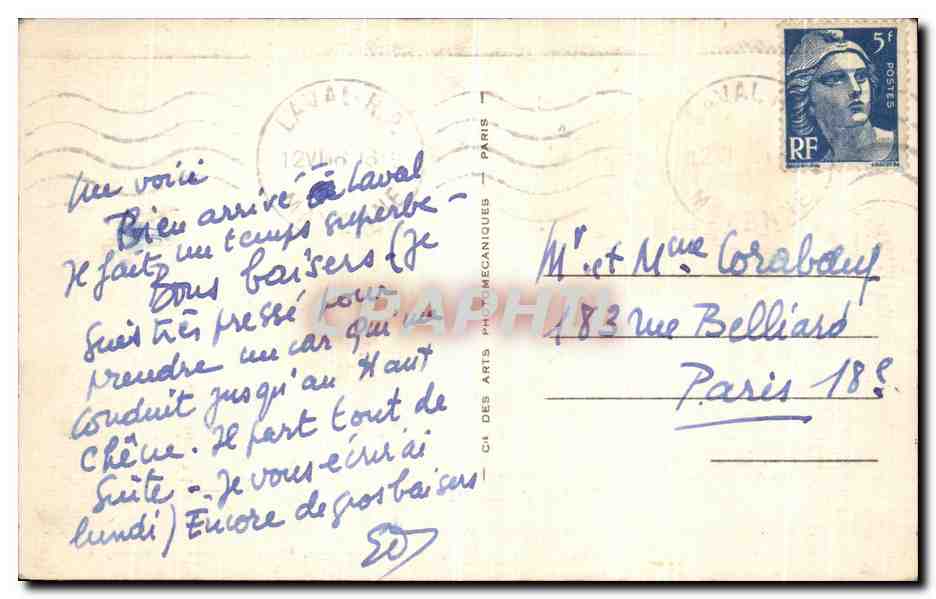 LAVAL-R.P.
12 VI
5f
POSTES
RF
Me voici
Bien arrivé à Laval
Il fait un temps superbe -
Bons baisers (Je
suis très pressé pour
prendre un car qui me
conduit jusqu'au Haut
Chêne. Il part tout de
suite - Je vous écrirai
lundi) Encore de gros baisers
CIE DES ARTS PHOTOMECANIQUES - PARIS
Mr et Mme
183 rue Belliard
Paris 18e
CRAPHIL